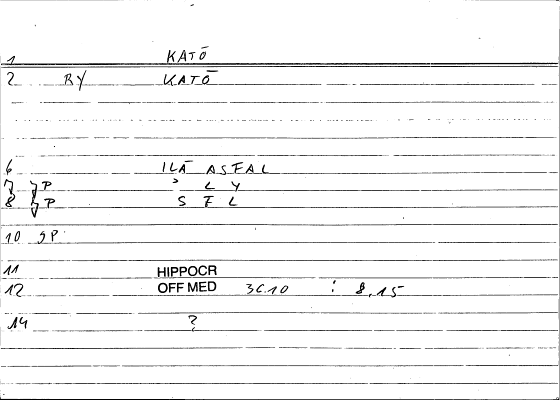 1 KATŌ
2 BY KATŌ
6 ILĀ ASFAL
7 JP ' L Y
8 JP S F L
10 SP
11 HIPPOCR
12 OFF MED 3C.10 : 8,15
14 ?